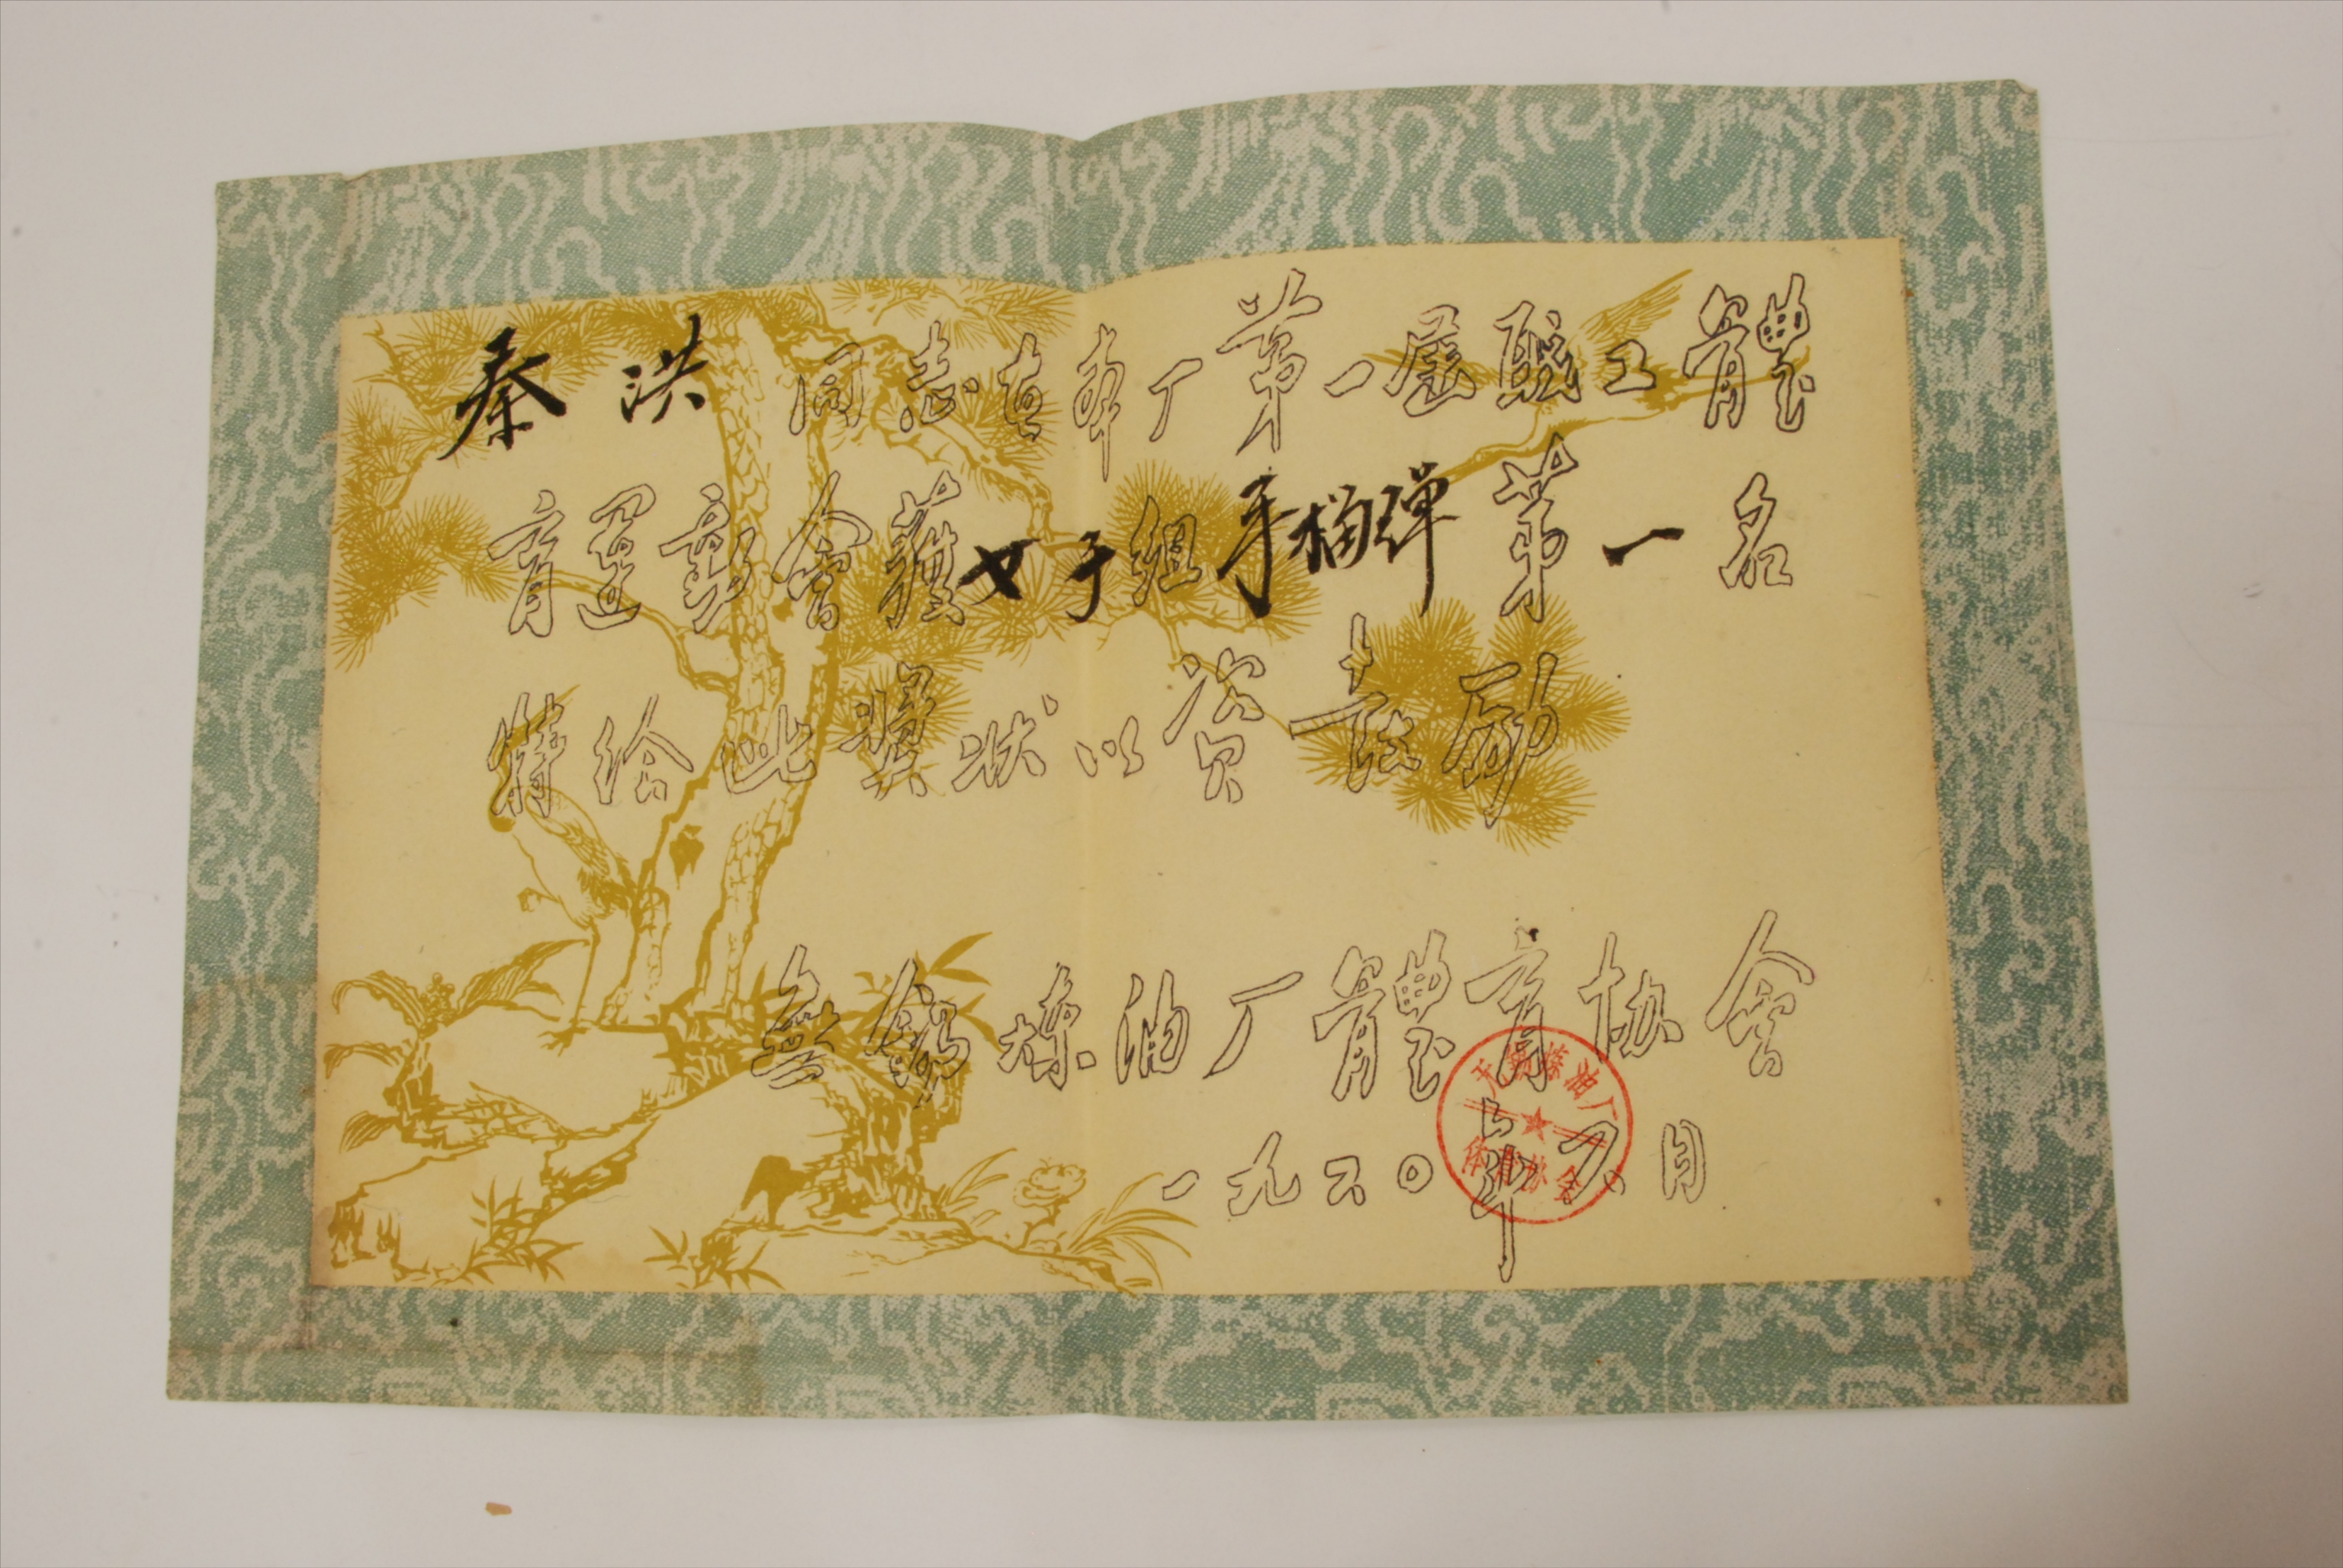 秦洪同志在本厂第一届職工體
育運動會獲女子组手榴弹第一名
特给此奖状以资鼓励
無錫炼油厂體育协會
一九六〇年月
无锡炼油厂
体育协会